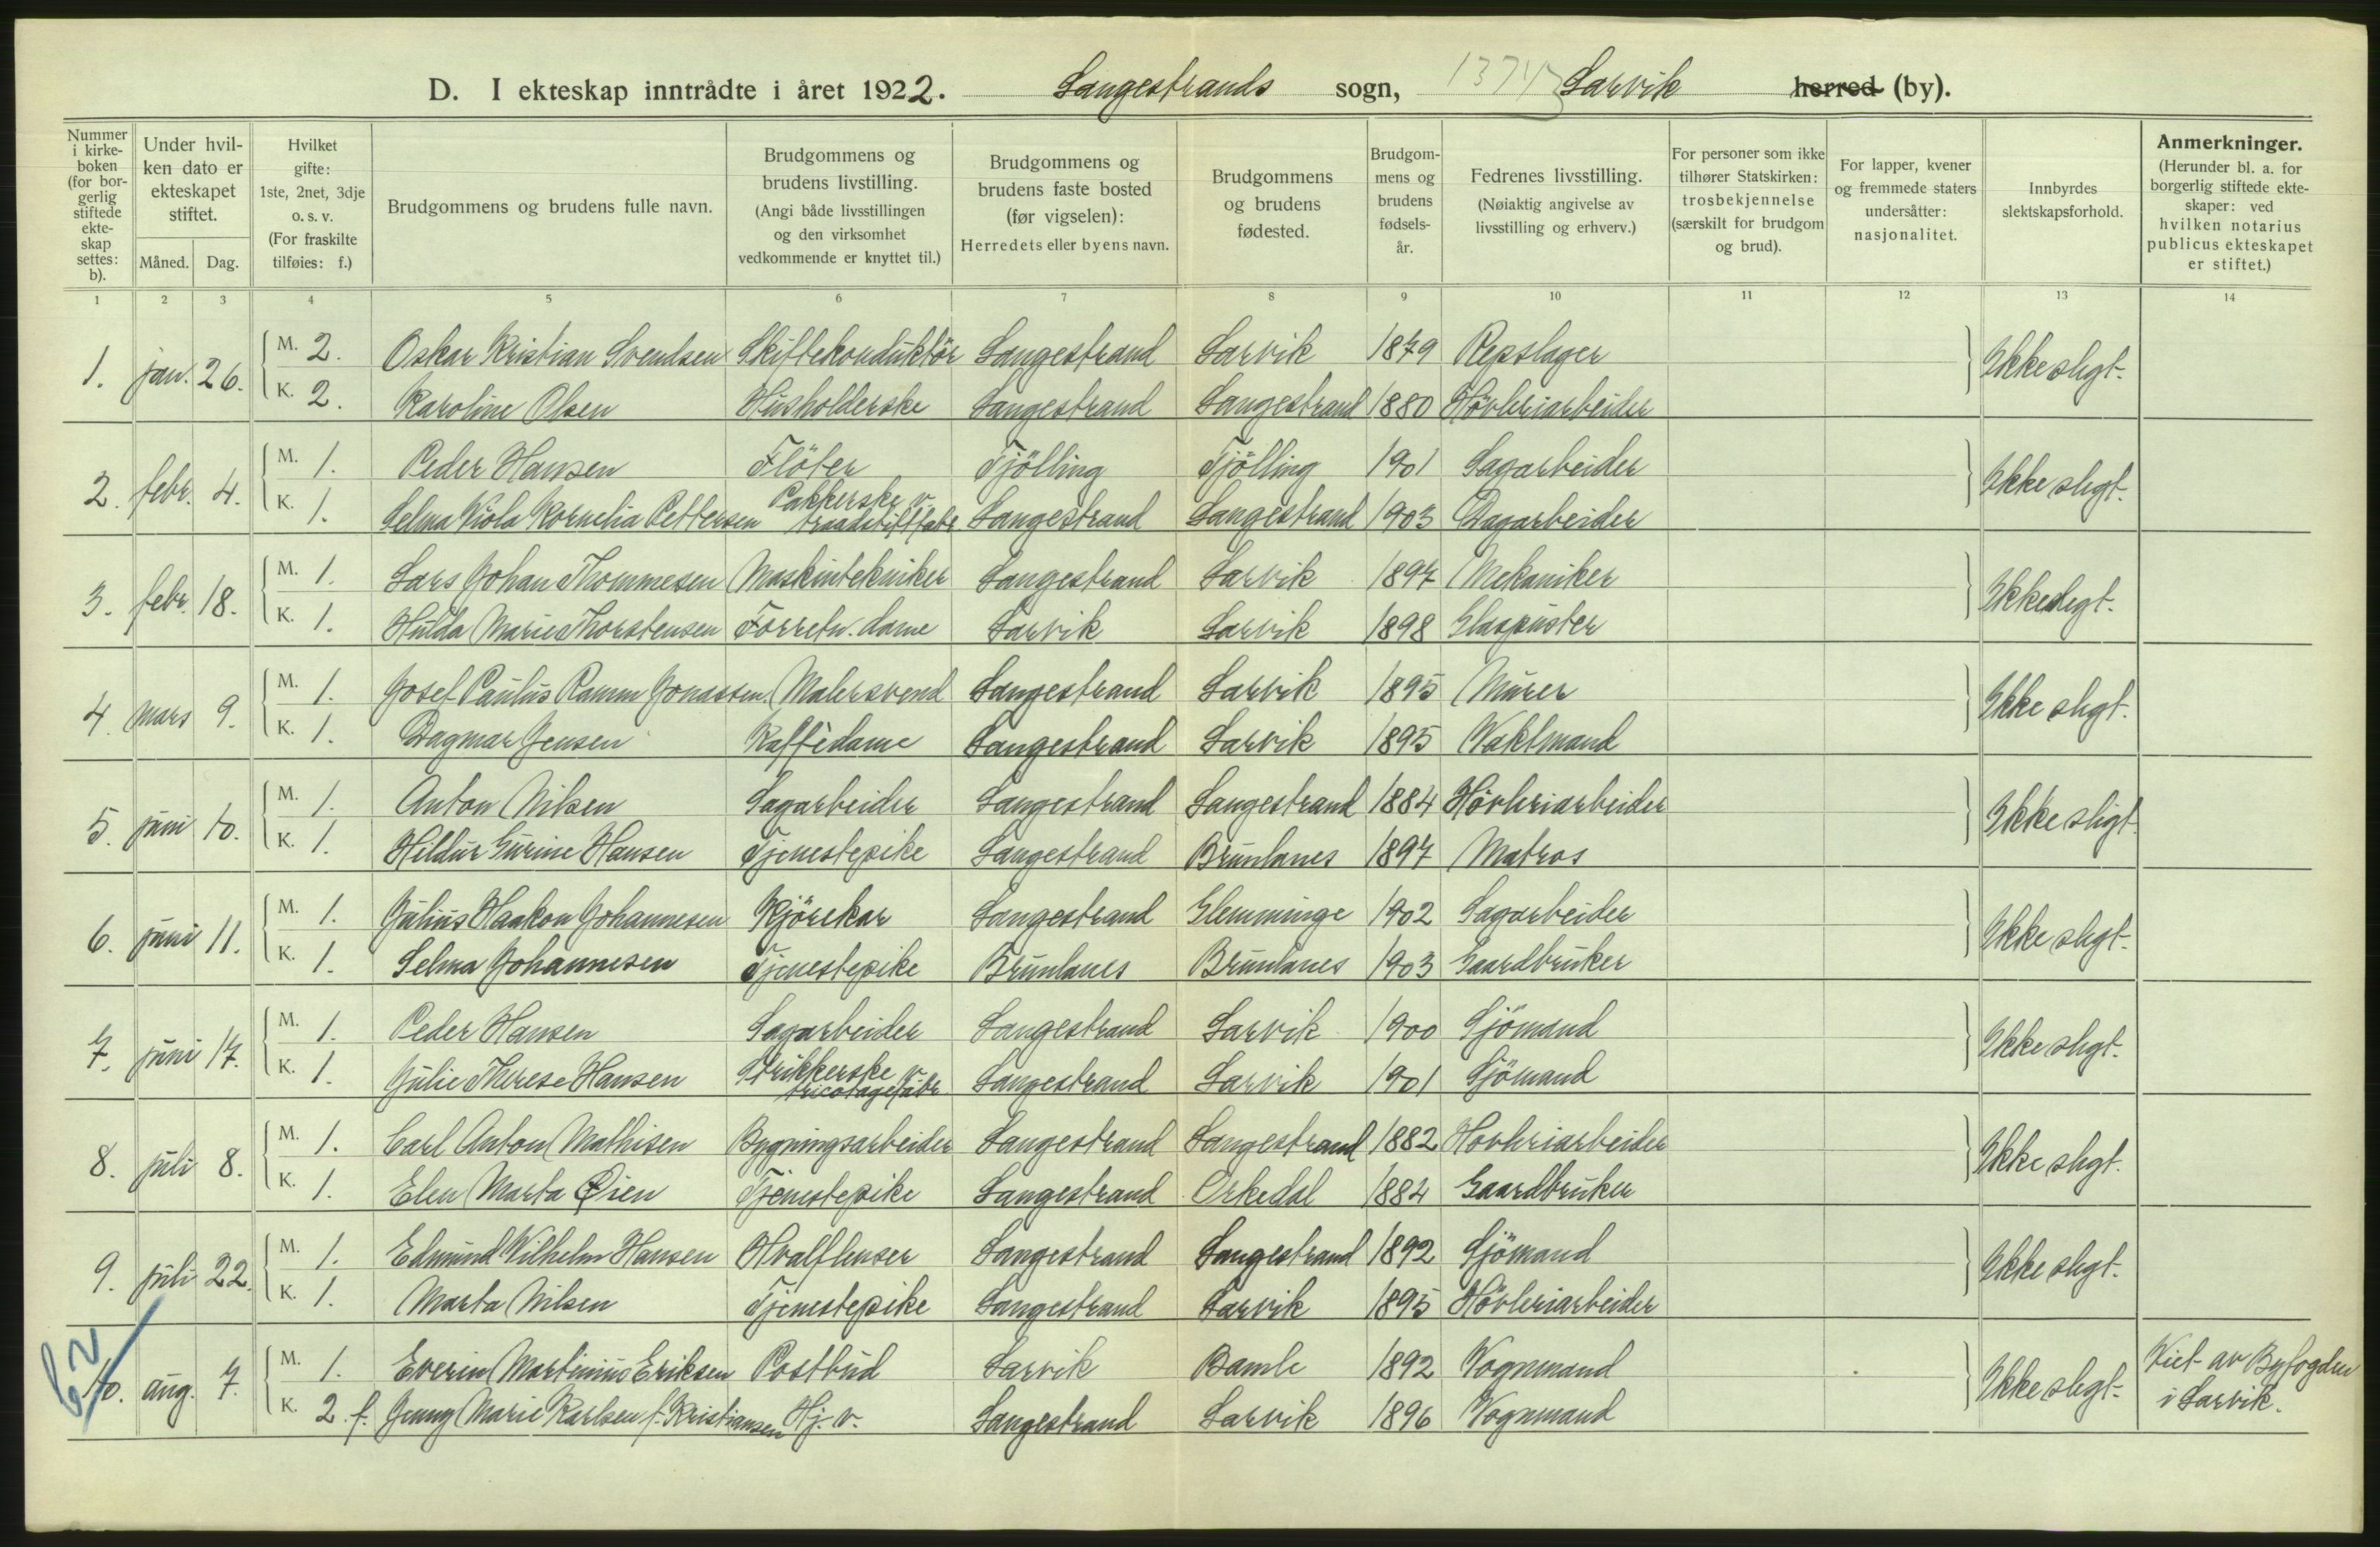 D. I ekteskap inntrådte i året 1922. Langestrands sogn, 1374 Larvik herred (by).
Nummer i kirkeboken (for borgerlig stiftede ekteskap settes: b).
Under hvilken dato er ekteskapet stiftet.
Måned. Dag.
Hvilket gifte: 1ste, 2net, 3dje o. s. v. (For fraskilte tilføies: f.)
Brudgommens og brudens fulle navn.
Brudgommens og brudens livstilling. (Angi både livsstillingen og den virksomhet vedkommende er knyttet til.)
Brudgommens og brudens faste bosted (før vigselen): Herredets eller byens navn.
Brudgommens og brudens fødested.
Brudgommens og brudens fødselsår.
Fedrenes livsstilling. (Nøiaktig angivelse av livsstilling og erhverv.)
For personer som ikke tilhører Statskirken: trosbekjennelse (særskilt for brudgom og brud).
For lapper, kvener og fremmede staters undersåtter: nasjonalitet.
Innbyrdes slektskapsforhold.
Anmerkninger. (Herunder bl. a. for borgerlig stiftede ekteskaper: ved hvilken notarius publicus ekteskapet er stiftet.)
1 2 3 4 5 6 7 8 9 10 11 12 13 14
1. jan. 26. M. 2. Oskar Kristian Svendsen Skiftekonduktör Langestrand Larvik 1879 Repslager Ikke slegt.
K. 2. Karoline Olsen Husholderske Langestrand Langestrand 1880 Hövleriarbeider
2. febr. 4. M. 1. Peder Hansen Flöter Tjölling Tjölling 1901 Sagarbeider Ikke slegt.
K. 1. Selma Viola Kornelia Pettersen Pakkerske v. traadstiftfabr. Langestrand Langestrand 1903 Dagarbeider
3. febr. 18. M. 1. Lars Johan Thommesen Maskintekniker Langestrand Larvik 1897 Mekaniker Ikke slegt.
K. 1. Hulda Marie Thorstensen Forretn. dame Larvik Larvik 1898 Glaspuster
4. mars 9. M. 1. Josef Paulus Ramm Jonassen. Malersvend Langestrand Larvik 1895 Murer Ikke slegt.
K. 1. Dagmar Jensen Kaffèdame Langestrand Larvik 1895 Vaktmand
5. juni 10. M. 1. Anton Nilsen Sagarbeider Langestrand Langestrand 1884 Hövleriarbeider Ikke slegt.
K. 1. Hildur Gurine Hansen Tjenestepike Langestrand Brunlanes 1897 Matros
6. juni 11. M. 1. Julius Haakon Johannesen Kjörekar Langestrand Glemminge 1902 Sagarbeider Ikke slegt.
K. 1. Selma Johannesen Tjenestepike Brunlanes Brunlanes 1903 Gaardbruker
7. juni 17. M. 1. Peder Hansen Sagarbeider Langestrand Larvik 1900 Sjömand Ikke slegt.
K. 1. Julie Therese Hansen Strikkerske v. tricotagefabr. Langestrand Larvik 1901 Sjömand
8. juli 8. M. 1. Carl Anton Mathisen Bygningsarbeider Langestrand Langestrand 1882 Hövleriarbeider Ikke slegt.
K. 1. Elen Marta Øien Tjenestepike Langestrand Orkedal 1884 Gaardbruker
9. juli 22. M. 1. Edmund Wilhelm Hansen Hvalflenser Langestrand Langestrand 1892 Sjömand Ikke slegt.
K. 1. Marta Nilsen Tjenestepike Langestrand Larvik 1895 Hövleriarbeider
10. aug. 7. M. 1. Everin Martinius Eriksen Postbud Larvik Bamle 1892 Vognmand Ikke slegt. Viet av Byfogden
K. 2. f. Jenny Marie Karlsen f. Kristiansen Hj. v. Langestrand Larvik 1896 Vognmand i Larvik.